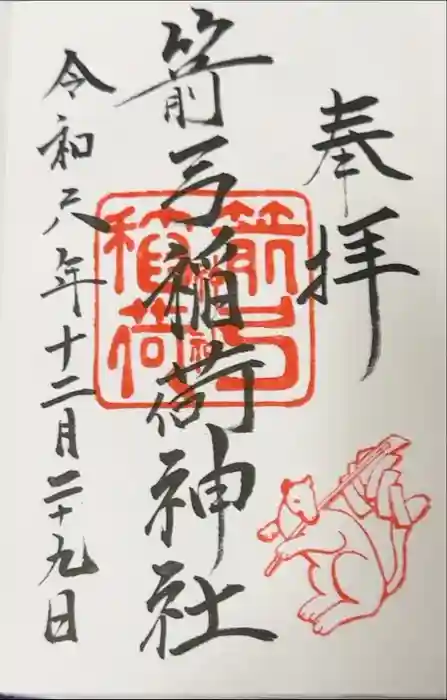 奉拝
箭弓稲荷神社
箭弓
稲荷
令和六年十二月二十九日